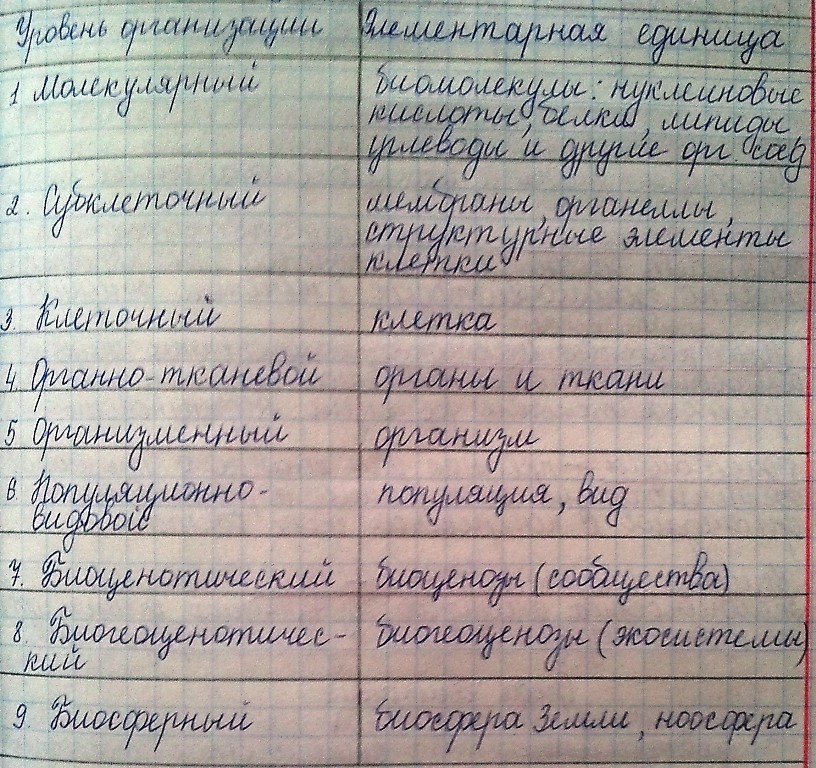 Уровень организации Элементарная единица
1 Молекулярный биомолекулы: нуклеиновые
кислоты, белки, липиды
углеводы и другие орг. соед
2. Субклеточный мембраны, органеллы,
структурные элементы
клетки
3. Клеточный клетка
4. Органно-тканевой органы и ткани
5 Организменный организм
6. Популяционно- популяция, вид
видовой
7. Биоценотический биоценозы (сообщества)
8. Биогеоценотичес- биогеоценозы (экосистемы)
кий
9. Биосферный биосфера Земли, ноосфера